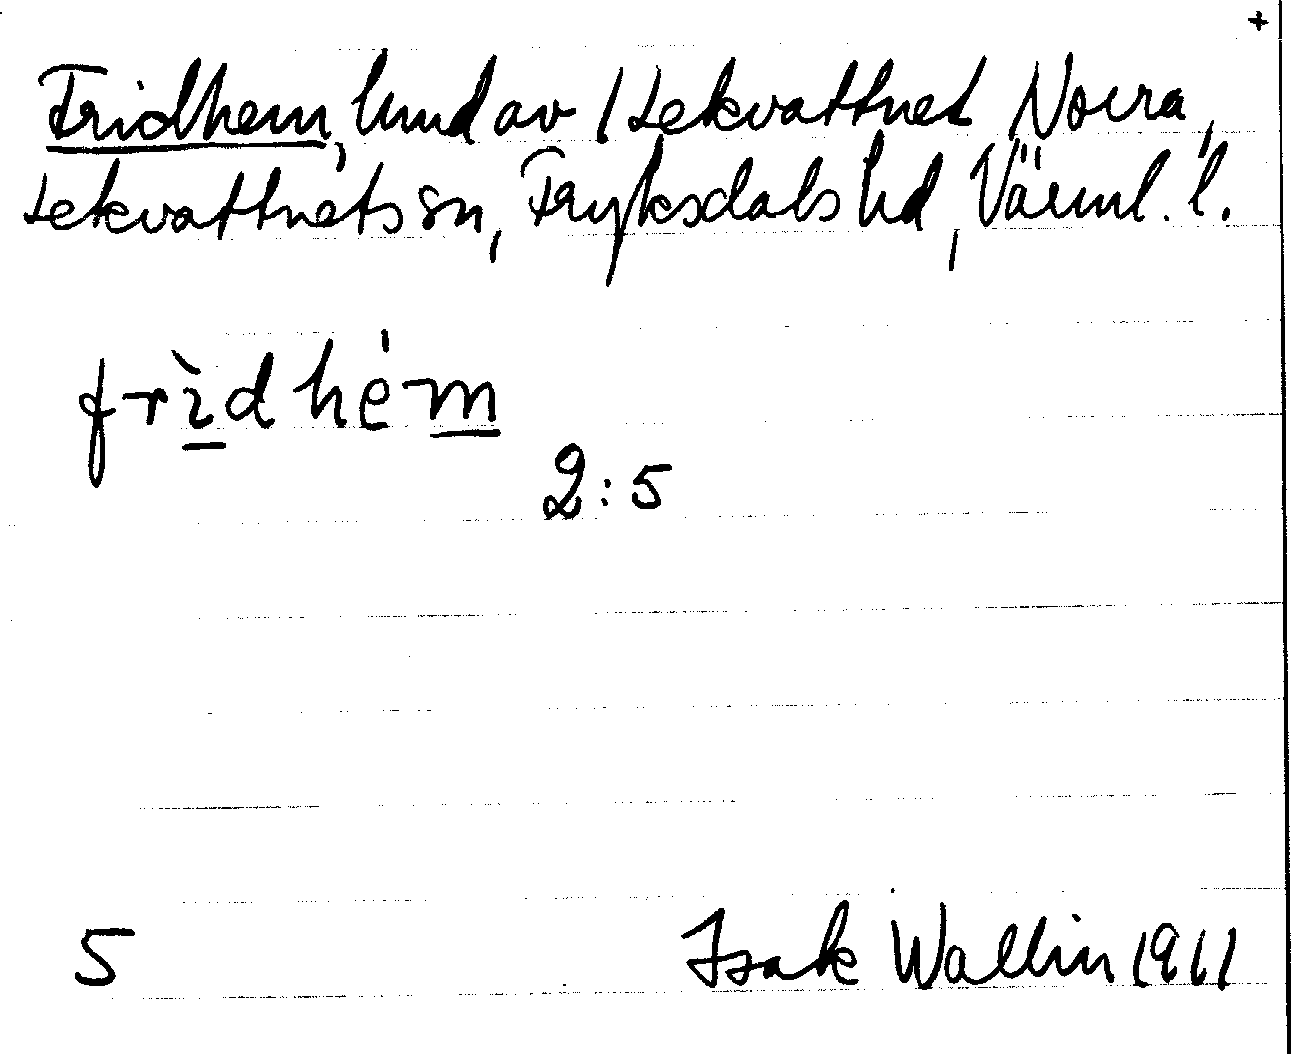 +
Fridhem, lmd av 1 Lekvattnet Norra,
Lekvattnets sn, Fryksdals hd, Värml. l.
frìdhé̀m
2:5
5 Isak Wallin 1961